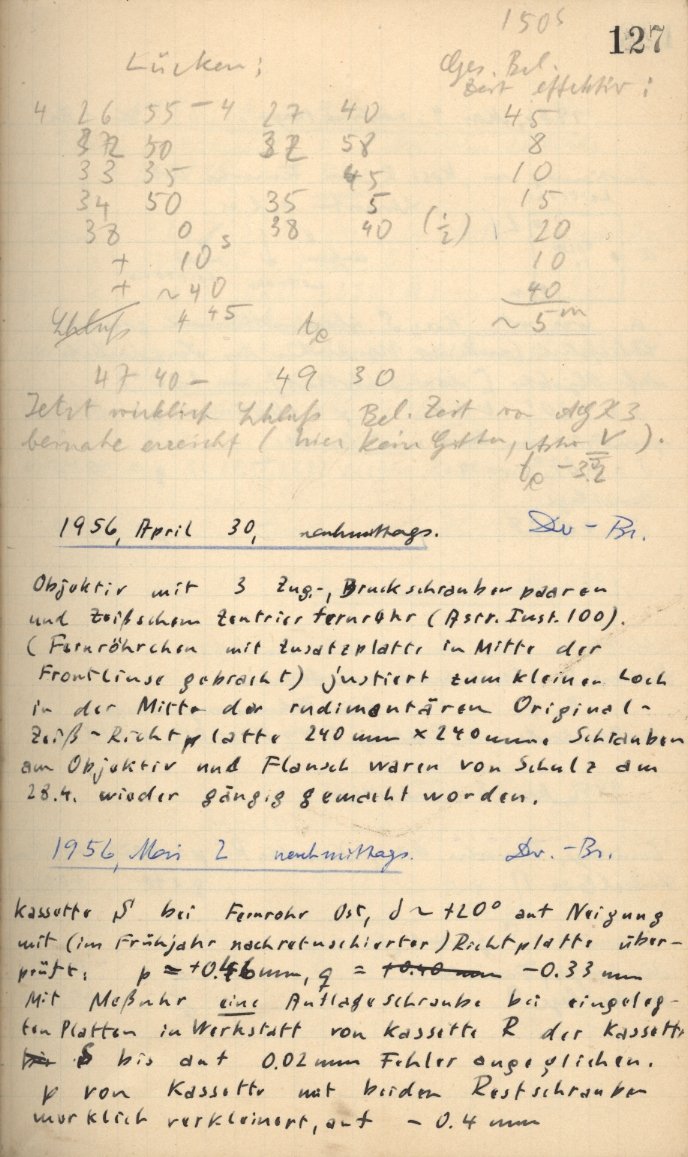 150s
127
Lücken:
Ges. Bel.
Zeit effektiv:
4 26 55 - 4 27 40 45
32 50 32 58 8
33 35 45 10
34 50 35 5 15
38 0 38 40 (½) 20
+ 10s 10
+ ~40 40
Schluß 4 45 te ~5m
47 40 - 49 30
Jetzt wirklich Schluß, Bel. Zeit von
beinahe erreicht (hier kein Gitter, V).
te
1956, April 30, nachmittags. Dv-Br.
Objektiv mit 3 Zug-, Druckschraubenpaaren
und Zeißschem Zentrierfernrohr (Astr. Inst. 100).
(Fernröhrchen mit Zusatzplatte in Mitte der
Frontlinse gebracht) justiert zum kleinen Loch
in der Mitte der rudimentären Original-
Zeiß-Richtplatte 240 mm × 240 mm. Schrauben
am Objektiv und Flansch waren von Schulz am
28.4. wieder gängig gemacht worden.
1956, Mai 2 nachmittags. Dv.-Br.
Kassette S bei Fernrohr Ost, δ ~ +20° auf Neigung
mit (im Frühjahr nachretuschierter) Richtplatte über-
prüft: p = +0.46 mm, q = +0.40 mm -0.33 mm
Mit Meßuhr eine Auflageschraube bei eingeleg-
ten Platten in Werkstatt von Kassette R der Kassette
S bis auf 0.02 mm Fehler angeglichen.
p von Kassette mit beiden Restschrauben
merklich verkleinert, auf - 0.4 mm